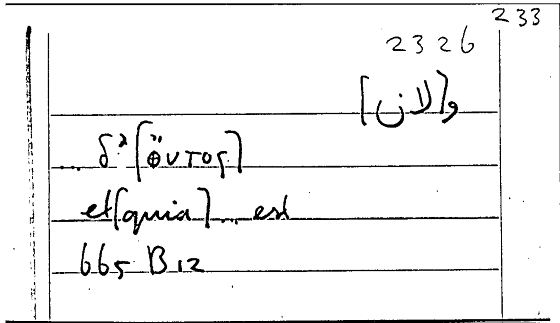 233
2326
و[لان]
... δ' [ὄντος]
et [quia] ... est
665 B 12